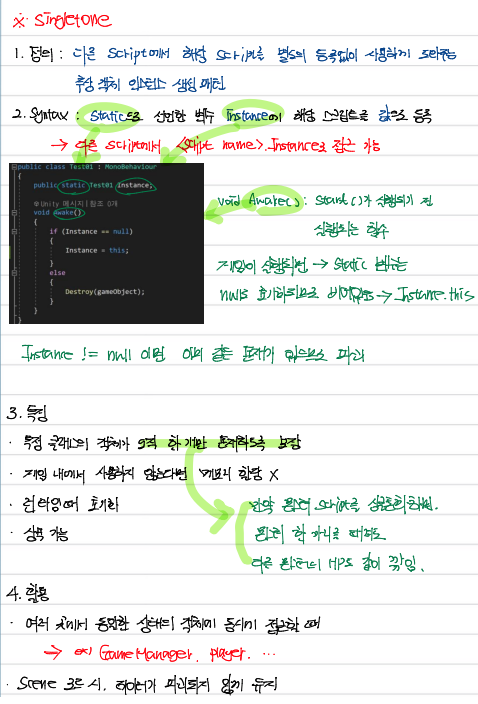 ※ Singletone
1. 정의 : 다른 Script에서 해당 Script를 별도의 등록없이 사용하게 도와주는
특정 객체 인스턴스 생성 패턴
2. Syntax : Static으로 선언한 변수 Instance에 해당 스크립트를 값으로 등록
→ 다른 Script에서 <Script name>.Instance로 접근 가능
public class Test01 : MonoBehaviour
{
public static Test01 Instance;
Unity 메시지|참조 0개
void Awake()
{
if (Instance == null)
{
Instance = this;
}
else
{
Destroy(gameObject);
}
}
}
void Awake() : Start()가 실행되기 전
실행되는 함수
게임이 실행되면 → Static 변수는
null로 초기화되므로 → Instance.this
Instance != null 이면 이미 같은 존재가 있으므로 파괴
3. 특징
· 특정 클래스의 객체가 오직 한 개만 존재하도록 보장
· 게임 내에서 사용하지 않는다면 메모리 할당 X
· 런타임에 초기화
· 상속 가능
만약 몬스터 Script를 싱글톤화하면.
몬스터 한 마리를 때려도
다른 몬스터의 HP도 같이 깎임.
4. 활용
· 여러 곳에서 동일한 상태의 객체에 동시에 접근할 때
→ ex) GameManager, player, ...
· Scene 로드 시, 데이터가 파괴되지 않게 유지